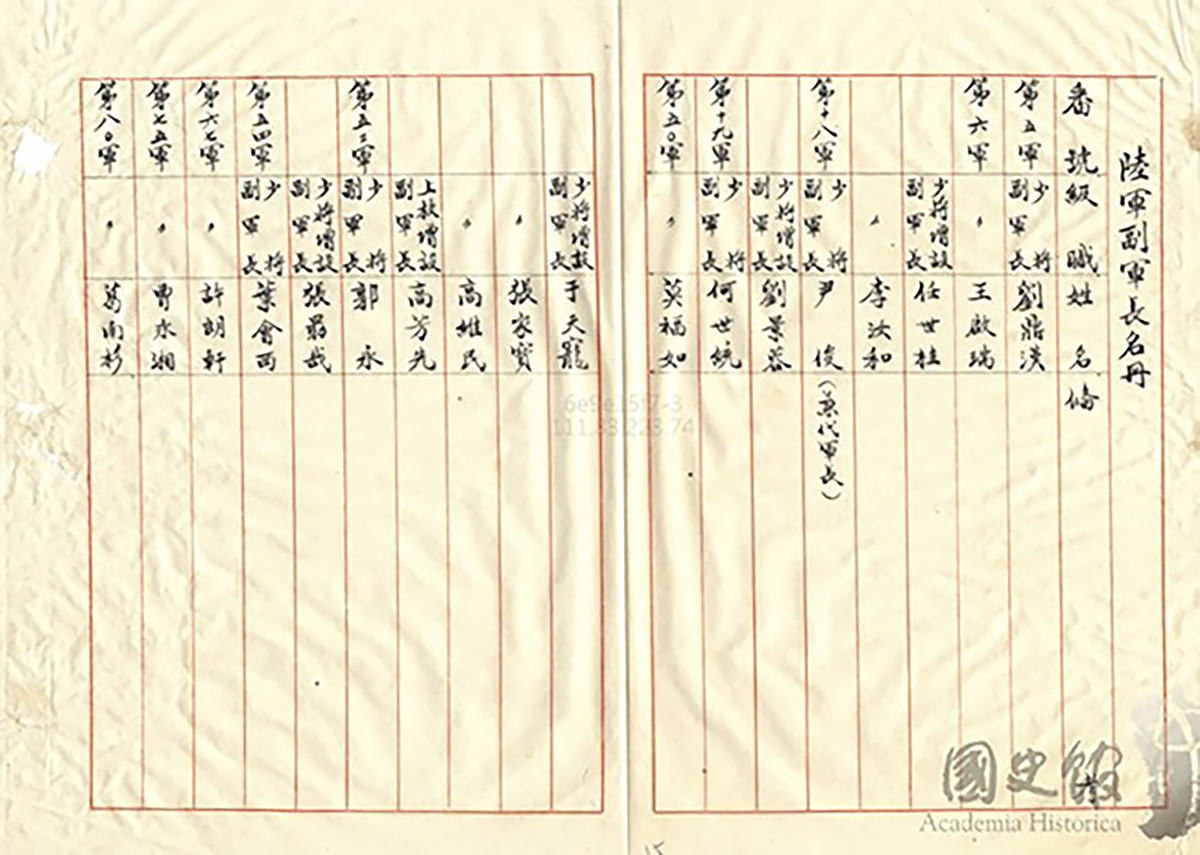 陸軍副軍長名冊
番號 級職 姓名 備考
第五軍 少將副軍長 劉鼎漢
第六軍 〃 王啟瑞
少將增設副軍長 任世桂
〃 李汝和
第十八軍 少將副軍長 尹俊 (兼代軍長)
少將增設副軍長 劉景蓉
第十九軍 少將副軍長 何世統
第五〇軍 〃 英福如
少將增設副軍長 于天寵
〃 張家寶
〃 高維民
上校增設副軍長 高芳先
第五二軍 少將副軍長 郭永
少將增設副軍長 張
第五四軍 少將副軍長 葉會西
第六七軍 〃 許朗軒
第七五軍 〃 曹永湘
第八〇軍 〃 葛南杉
6e9e15f7-3
111.83.223.74
國史館
Academia Historica
15